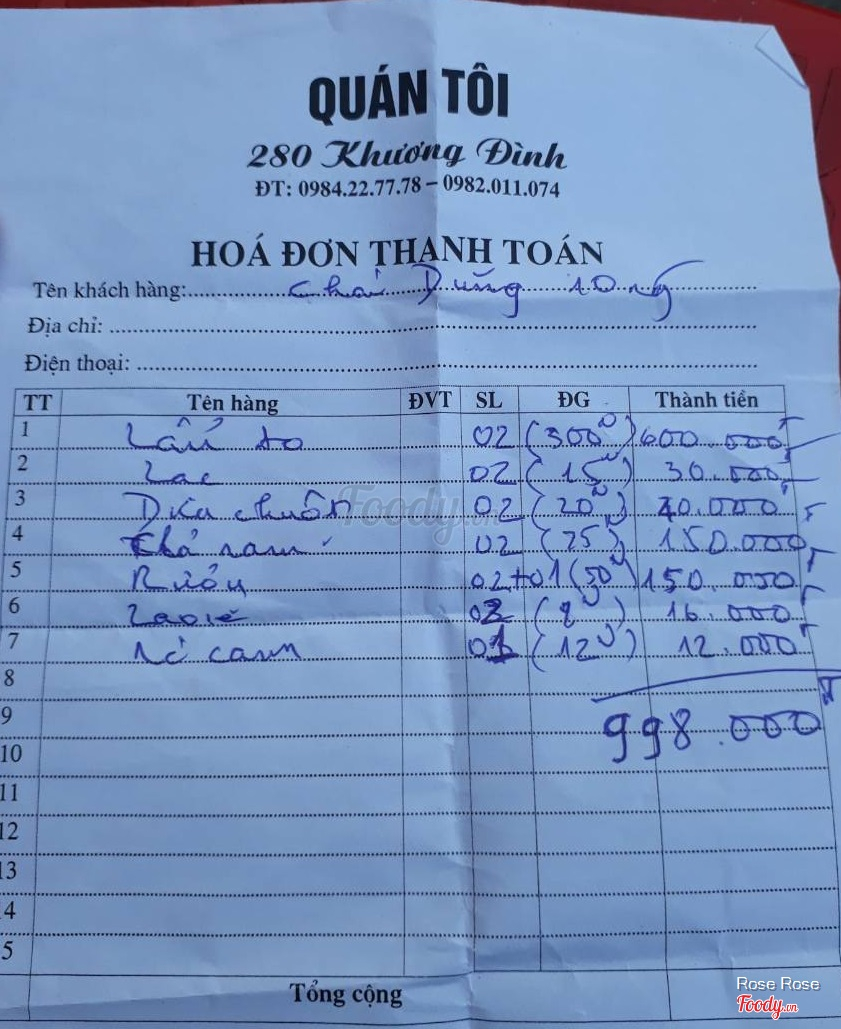 QUÁN TÔI
280 Khương Đình
ĐT: 0984.22.77.78 – 0982.011.074
HOÁ ĐƠN THANH TOÁN
Tên khách hàng: Dũng 10 ng
Địa chỉ:
Điện thoại:
TT Tên hàng ĐVT SL ĐG Thành tiền
1 Lẩu to 02 (300) 600.000
2 Lac 02 (15) 30.000
3 Dưa chuột 02 (20) 40.000
4 02 (75) 150.000
5 Rượu 02+01 (50) 150.000
6 Lavie 02 (8) 16.000
7 cam 01 (12) 12.000
8
998.000
9
10
11
12
13
4
5
Tổng cộng
Foody.vn
Rose Rose
Foody.vn